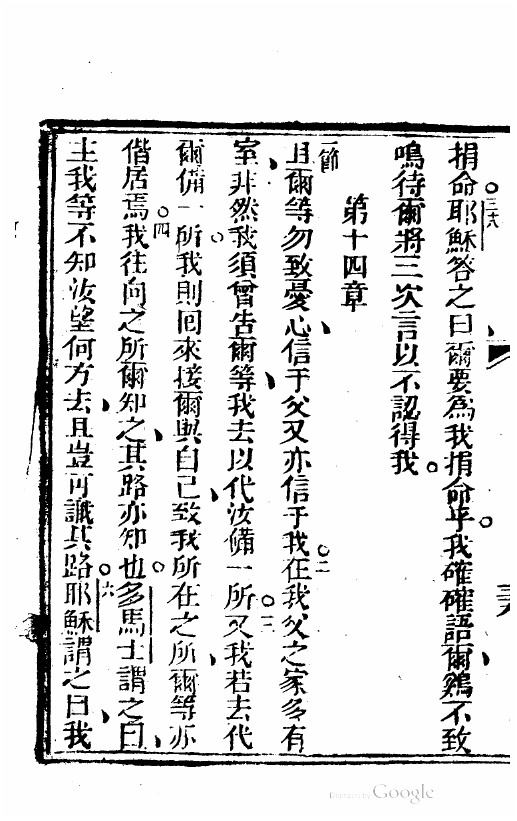 捐命。三八耶穌答之曰、爾要為我捐命乎。我確確語爾、鷄不致
鳴待爾將三次言以不認得我。
第十四章
節
且爾等勿致憂心、信于父又亦信于我。二在我父之家多有
室、非然我須曾告爾等、我去以代汝備一所。三又我若去代
爾備一所、我則回來接爾與自己、致我所在之所、爾等亦
偕居焉。四我往向之所爾知之、其路亦知也。多馬士謂之曰、
主我等不知汝望何方去、且豈可識其路。六耶穌謂之曰、我
三六
Digitized by Google